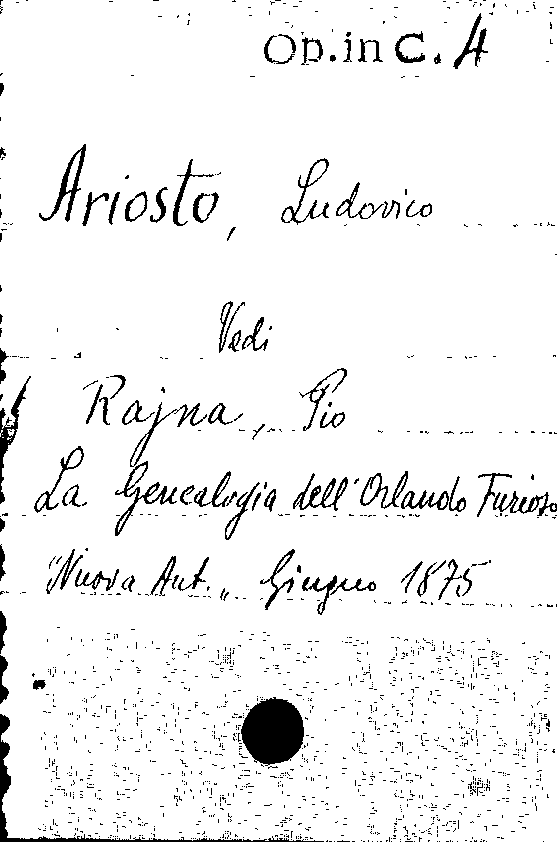 Op.in C. 4
Ariosto, Ludovico
Vedi
Rajna, Pio
La Genealogia dell'Orlando Furioso
"Nuova Ant." Giugno 1875